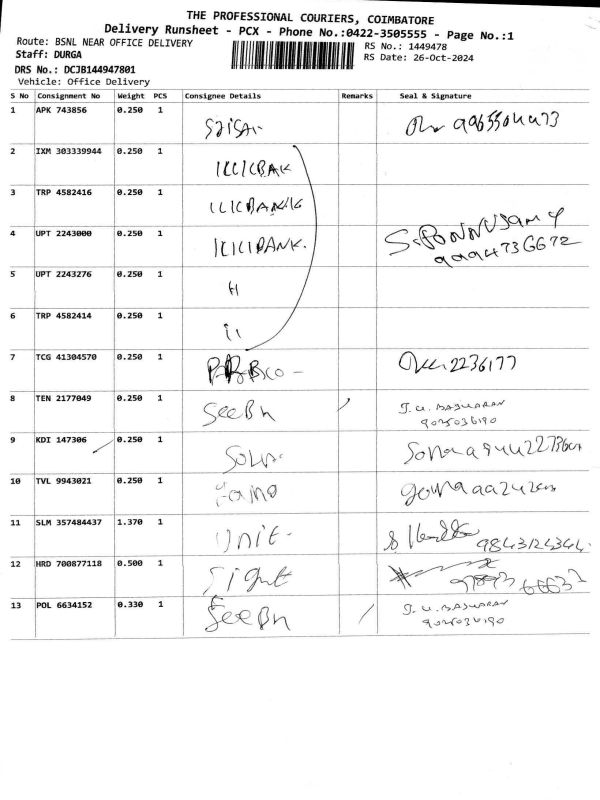 THE PROFESSIONAL COURIERS, COIMBATORE
Delivery Runsheet - PCX - Phone No.:0422-3505555 - Page No.:1
Route: BSNL NEAR OFFICE DELIVERY
RS No.: 1449478
Staff: DURGA
RS Date: 26-Oct-2024
DRS No.: DCJB144947801
Vehicle: Office Delivery
S No Consignment No Weight PCS Consignee Details Remarks Seal & Signature
1 APK 743856 0.250 1
2 IXM 303339944 0.250 1 ICICIBAK
3 TRP 4582416 0.250 1 ICICBANK
4 UPT 2243000 0.250 1 ICICIBANK. S.PONNUSAMY
9994736672
5 UPT 2243276 0.250 1 11
6 TRP 4582414 0.250 1 11
7 TCG 41304570 0.250 1 2236177
8 TEN 2177049 0.250 1 SeeBn J.U. BASKARAN
9025036190
9 KDI 147306 0.250 1
10 TVL 9943021 0.250 1
11 SLM 357484437 1.370 1 Unit 9843124344
12 HRD 700877118 0.500 1 Sight
13 POL 6634152 0.330 1 SeeBn J.U. BASKARAN
9025036190